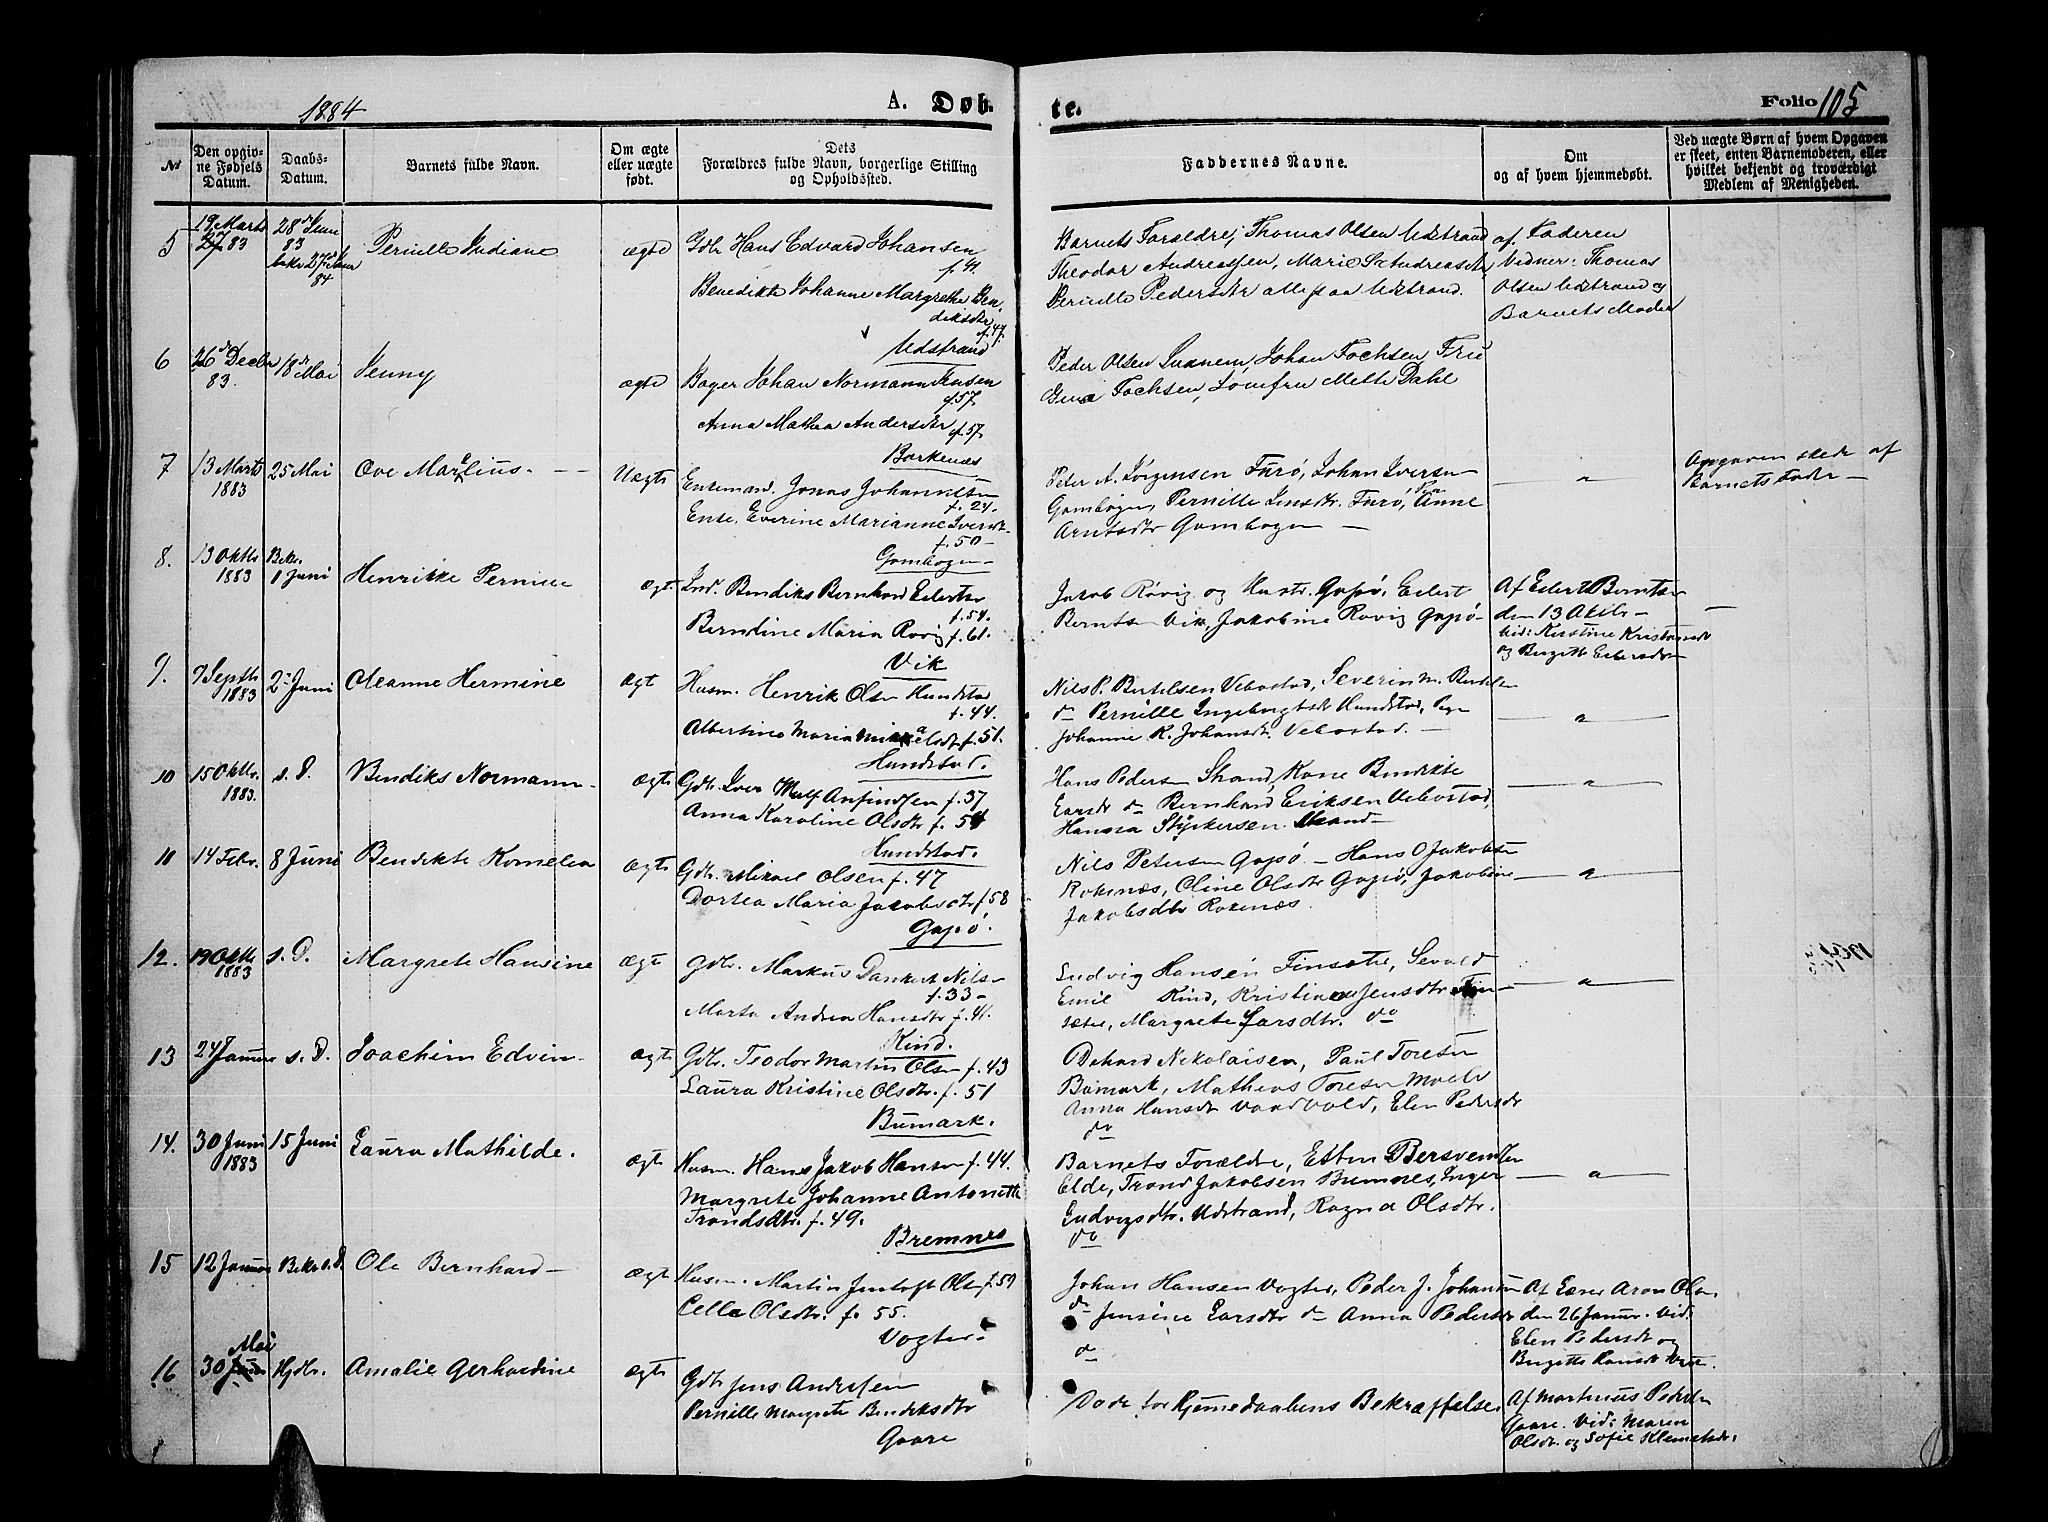 1884
A. Døb-
te.
Folio 105
Nr
Den opgiv-
ne Fødsels
Datum.
Daabs-
Datum.
Barnets fulde Navn.
Om ægte
eller uægte
født.
Dets
Forældres fulde Navn, borgerlige Stilling
og Opholdssted.
Faddernes Navne.
Om
og af hvem hjemmedøbt.
Ved uægte Børn af hvem Opgaven
er skeet, enten Barnemoderen, eller
hvilket bekjendt og troværdigt
Medlem af Menigheden.
5
19 Marts
83
28de Juni
83
Pernille Indiane
ægte
Gdbr Hans Edvard Johansen
f. 41.
Benedikte Johanne Margrethe Ben-
diksdtr
f. 47.
Udstrand
Barnets Forældre, Thomas Olsen Udstrand
Theodor Andreassen, Marie S. Andreasdtr,
Pernille Pedersdtr alle paa Udstrand.
af Faderen
Vidner: Thomas
Olsen Udstrand og
Barnets Moder
6
26de Decbr
83.
18de Mai
Jenny
ægte
Bager Johan Normann Jensen
f. 57.
Anna Mathea Andersdtr
f. 57.
Borkenæs
Peder Olsen Johan Fochsen, Fru
Gina Fochsen, Jomfru Mette Dahl
7
13 Marts
1883
25 Mai
Ove Marelius.
Uægte
Enkemand. Jonas Johannesen
f. 24.
Enke. Everine Marianne Iversdtr.
f. 50
Gombogen
Peter A. Jørgensen Furø, Johan Iversen
Gombogen, Pernille Jensdtr. Furø, Anne
Arntsdtr Gombogen
Opgaven skede af
Barnets Fader
8.
13 Oktbr
1883
Bekr.
1 Juni
Henrikke Pernille
Ægte
Ind. Bendiks Bernhard Eilertsen
f. 54.
Berntine Maria Røvig f. 61.
Vik
Jakob Røvig og Hustr. Gapø, Eilert
Berntsen Vik, Jakobine Røvig Gapø
Af Eilert Berntsen
den 13 Oktbr
Vid: Kirstine Kristensdtr
og Birgitte Eilersdtr
9.
7 Septbr
1883
2 Juni
Oleanne Hermine
Ægt
Husm. Henrik Olsen Hundstad
f. 44.
Albertine Maria Mikkalsdtr f. 51.
Hundstad.
Nils P. Bertelsen Vebostad, Severin M. Bertelsen
do Pernille Ingebrigtsdtr Hundstad, Pige
Johanne K. Johansdtr. Vebostad.
10
15 Oktbr.
1883.
s. D.
Bendiks Normann
ægte
Gdbr. Iver Wulf Anfindsen f. 37
Anna Karoline Olsdtr f. 54
Hundstad.
Hans Pedersen Strand, Kone Bendikte
Larsdr do Bernhard Eriksen Vebostad,
Hansea Styrkersen Strand
11
14 Febr.
8 Juni
Bendikte Kornelia
Ægte
Gdbr. Mikael Olsen f. 47
Dortea Maria Jacobsdtr f. 58
Gapø.
Nils Petersen Gapø. Hans O Jakobsen
Rokenæs, Oline Olsdtr Gapø, Jakobine
Jakobsdtr Rokenæs.
12.
19 Oktbr
1883
s. D.
Margrete Hansine
Ægt
Gdbr. Markus Dankert Nilsen
f. 33
Marta Andrea Hansdtr f. 41.
Kind.
Ludvig Hansen Finsæter, Sevald
Emil Kind, Kristiane Jensdtr Fin-
sæter, Margrete Larsdtr. do
13
24 Januar
s. D.
Joachim Edvin
ægte
Gdbr. Teodor Martin Olsen f. 43
Laura Kristine Olsdtr. f. 51
Bumark.
Nikolaisen, Paul Toresen
Bumark, Mathias Toresen Moele
Anna Hansdtr Vaadvold, Elen Pedersdr
do
14.
30 Juni
1883
15 Juni
Laura Mathilde.
Ægt
Husm. Hans Jakob Hansen f. 44.
Margrete Johanne Antonette
Trondsdtr. f. 49.
Bremnes
Barnets Forældre, Etten Bersvendsen
Elde, Trond Jakobsen Bremnes, Inger
Ludvigsdtr. Udstrand, Ragna Olsdtr.
do
15
12 Januar
Bekr. s. D.
Ole Bernhard
Ægt
Husm. Martin Jentoft Olsen f. 59
Celle Olsdtr. f. 55.
Vogter
Johan Hansen Vogter, Peder J. Johansen
do Jensine Larsdtr do Anna Pedersdtr
do
Af Lærer Aron Olsen
den 26 Januar. Vid.
Elen Pedersdtr og
Birgitte Hansdtr
16
Mai
30
Hjdbr.
Amalie Gerhardine
Ægte
Gdbr Jens Andersen
Pernille Margrete Bendiksdtr
Gaare
Døde før Hjemmedaabens Bekræftelse.
Af Martinus Pedersen
Gaare. Vid: Maren
Olsdtr. og Sofie Klemetsdtr.